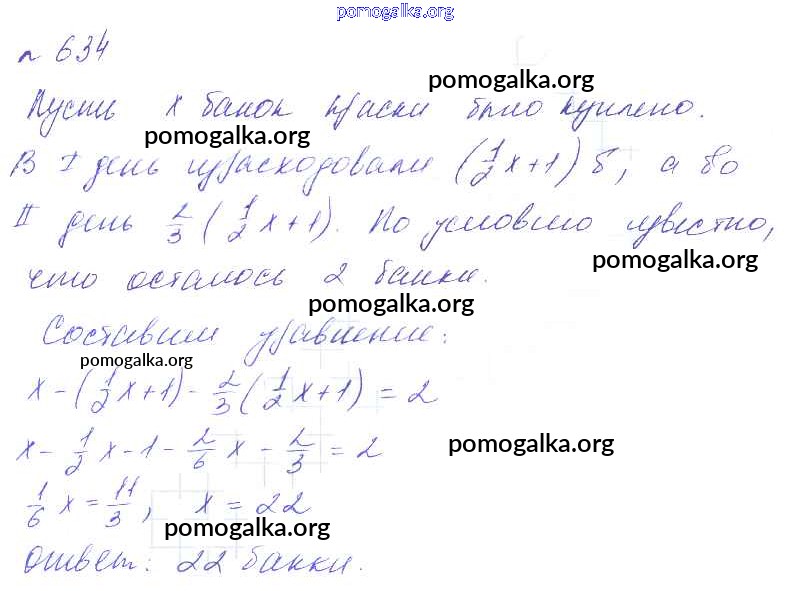 pomogalka.org
n 634
pomogalka.org
Пусть x банок краски было куплено.
pomogalka.org
В I день израсходовали (1/2 x + 1) б, а во
II день 2/3 (1/2 x + 1). По условию известно,
pomogalka.org
что осталось 2 банки.
pomogalka.org
Составим уравнение:
pomogalka.org
x - (1/2 x + 1) - 2/3 (1/2 x + 1) = 2
x - 1/2 x - 1 - 2/6 x - 2/3 = 2
pomogalka.org
1/6 x = 11/3, x = 22
pomogalka.org
Ответ: 22 банки.